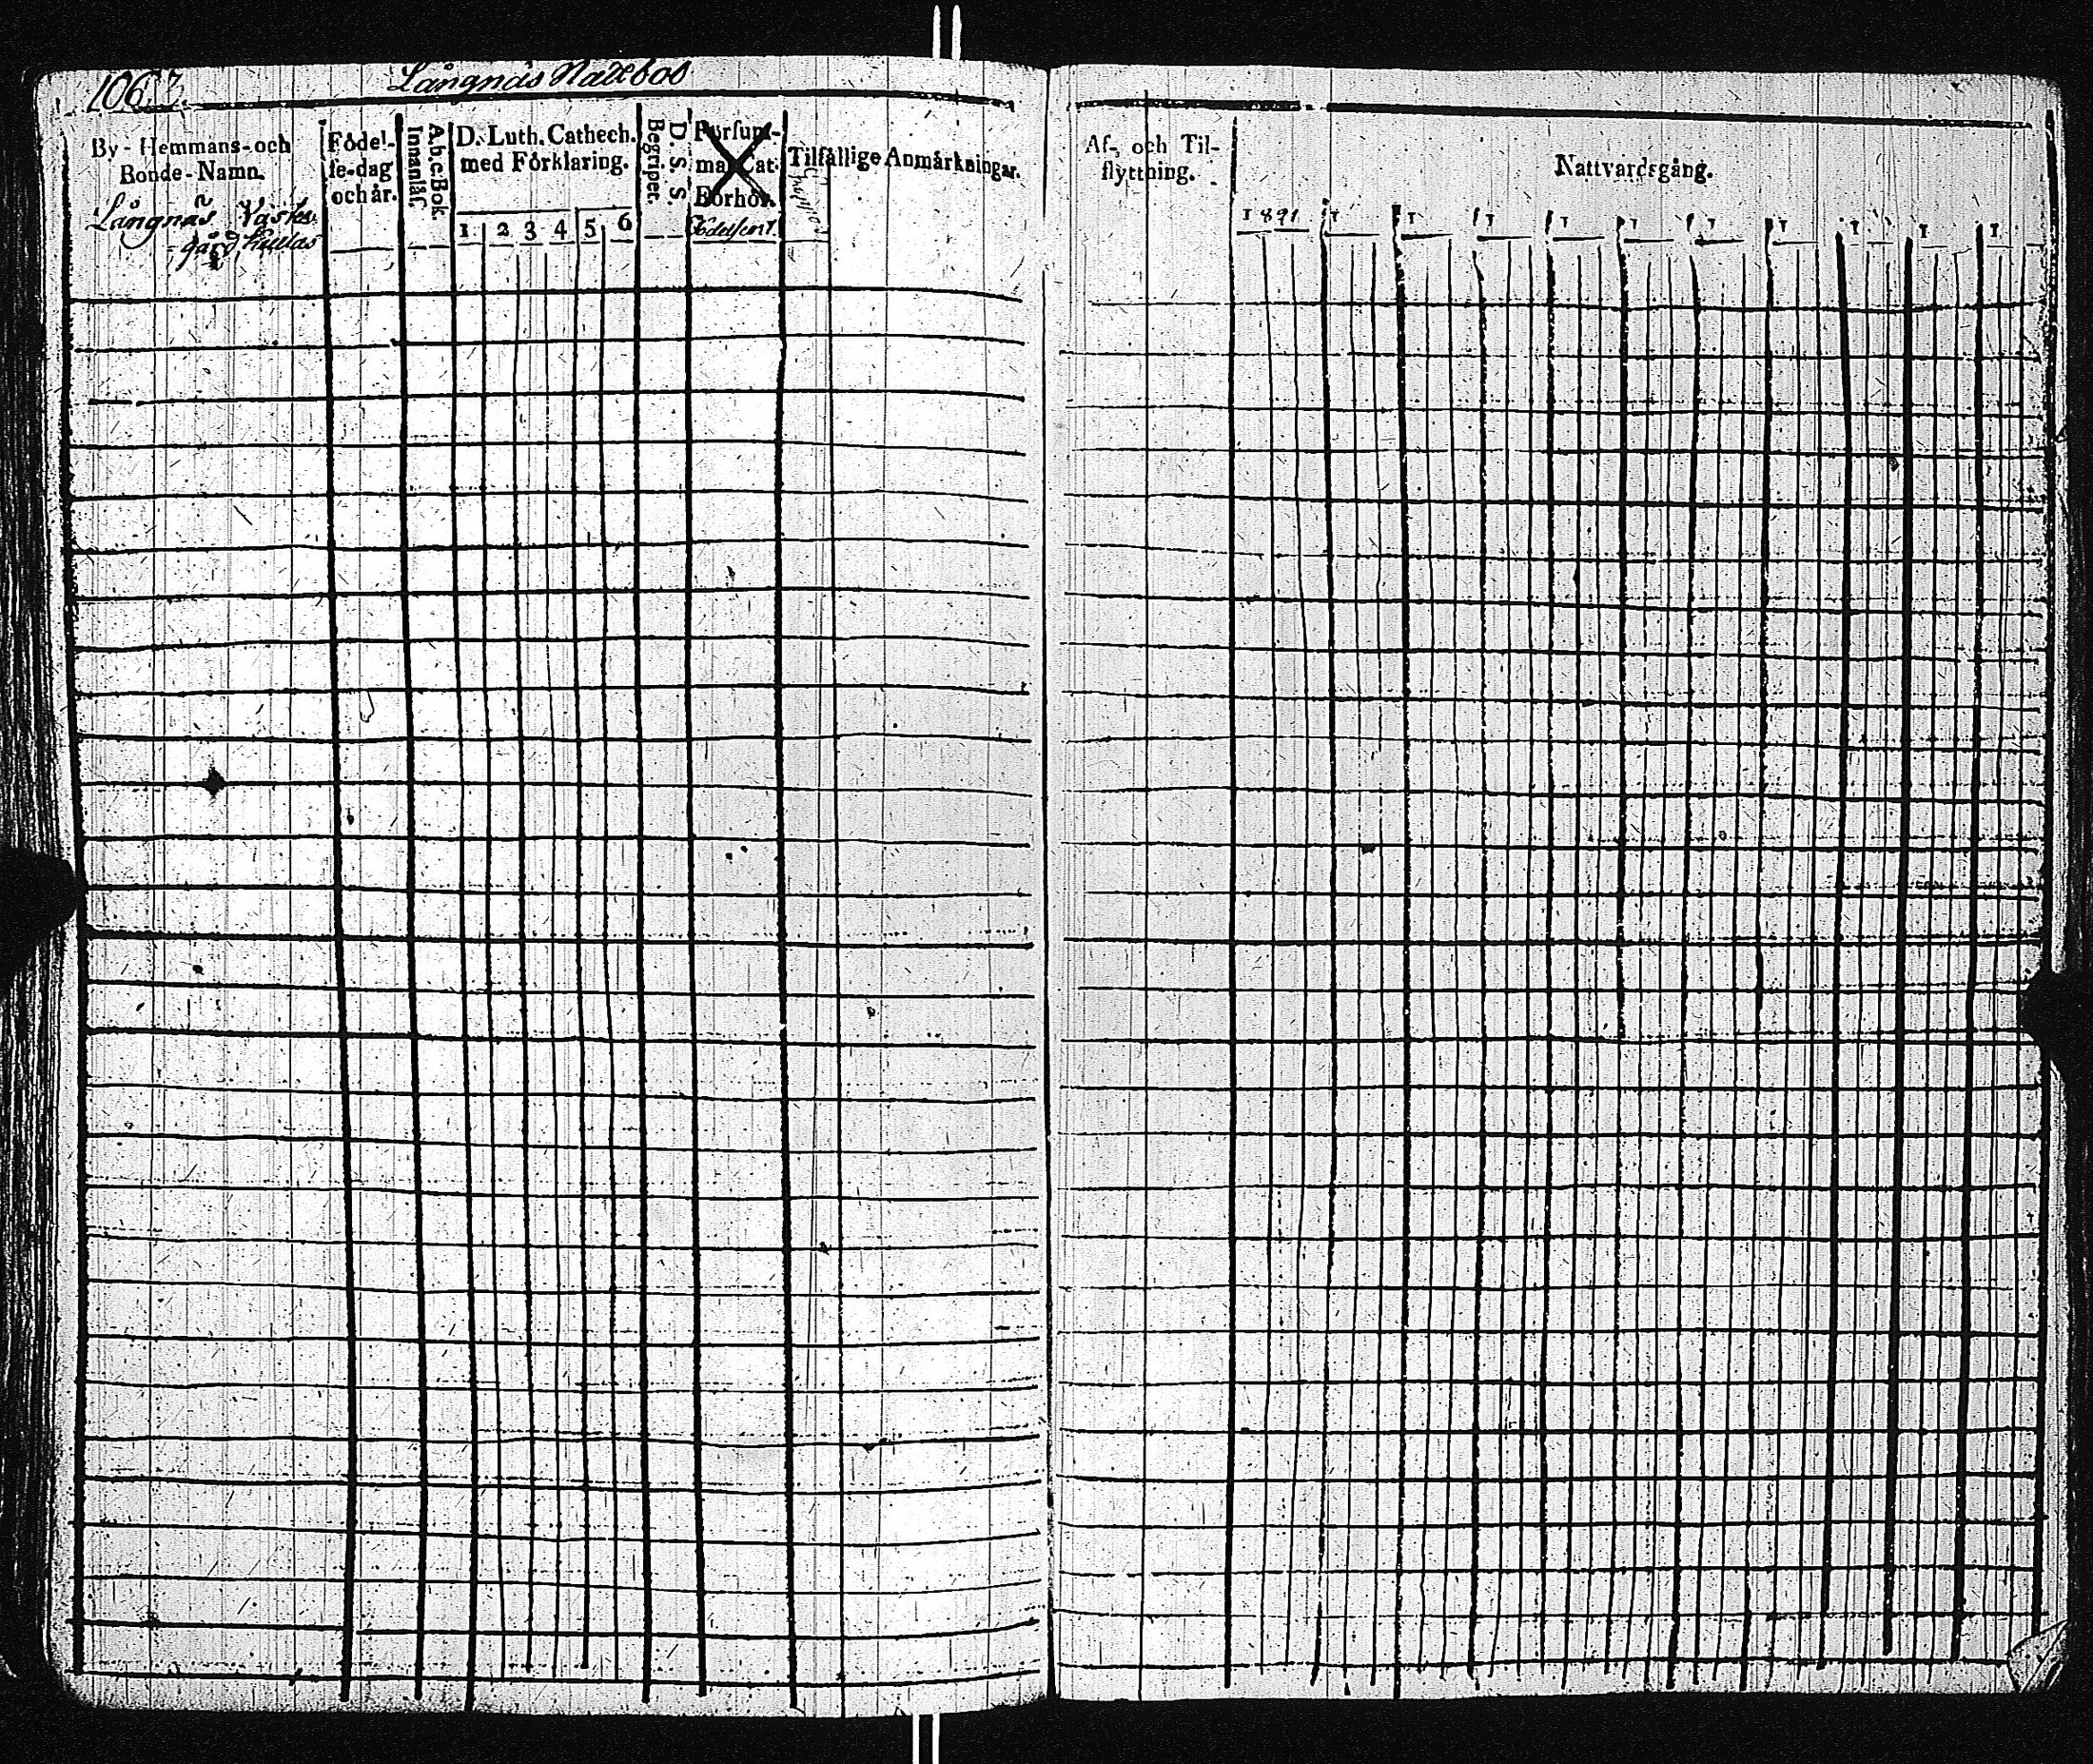 106
Långnäs
By-Hemmans-och
Bonde-Namn.
Långnäs Väster
gård, Kullas
Födel-
se-dag
och år.
Ab.c.Bok.
Innanläs.
D. Luth. Cathech.
med Förklaring.
1 2 3 4 5 6
D. S. S.
Begripet.
Försum-
ma Cat.
Förhör.
Födelseort.
Tilfällige Anmärkningar.
Af- och Til-
flyttning.
Nattvardsgång.
1891 1 1 1 1 1 1 1 1 1 1